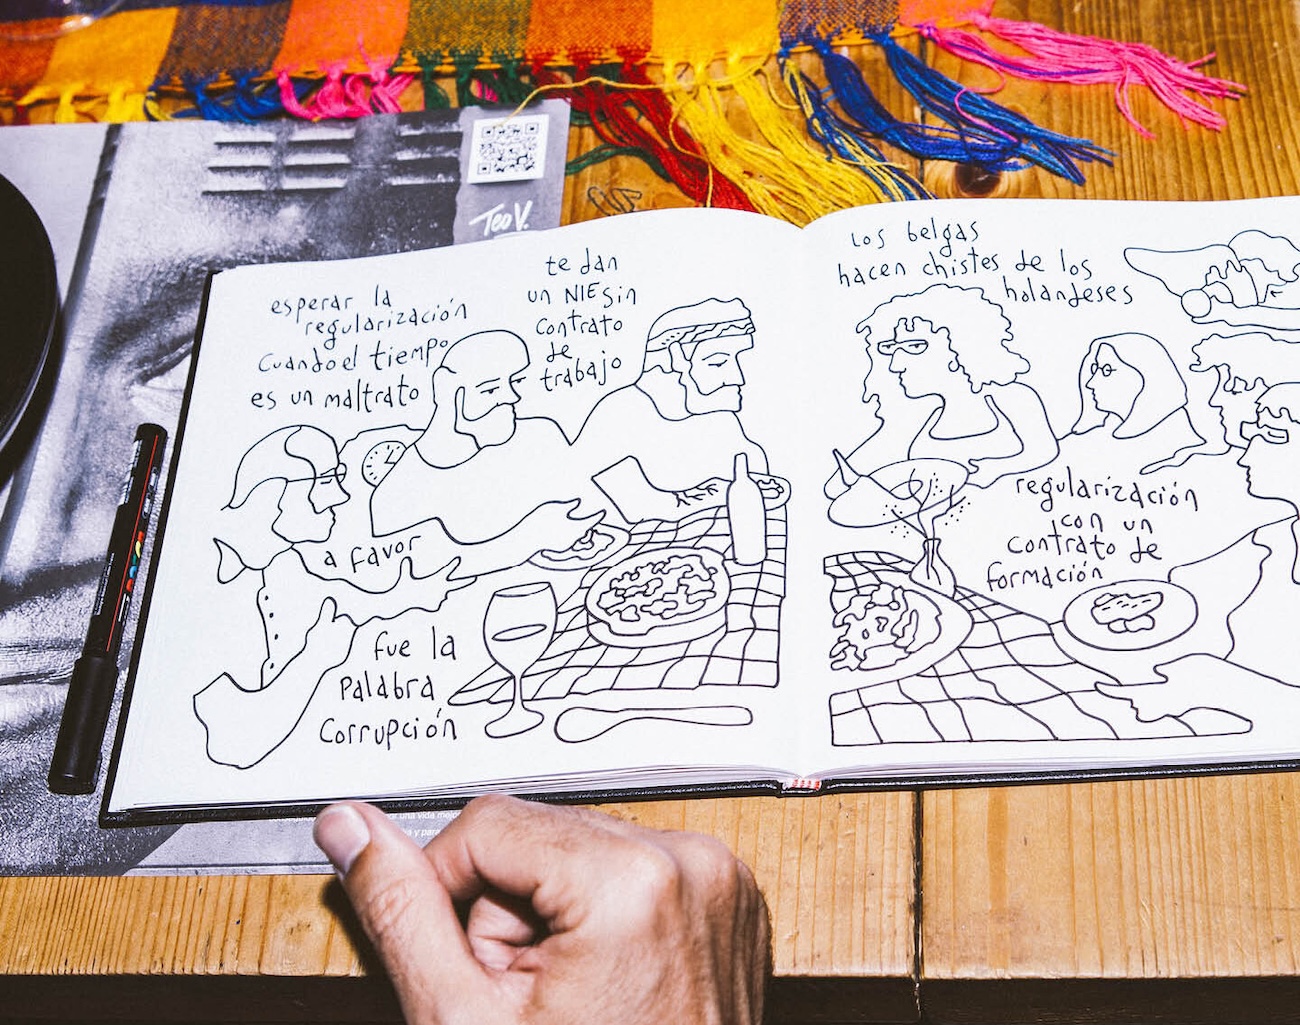 Teo V.
esperar la
regularización
cuando el tiempo
es un maltrato
te dan
un NIE sin
contrato
de
trabajo
a favor
fue la
palabra
corrupción
los belgas
hacen chistes de los
holandeses
regularización
con un
contrato de
formación
por una vida mejor
y para